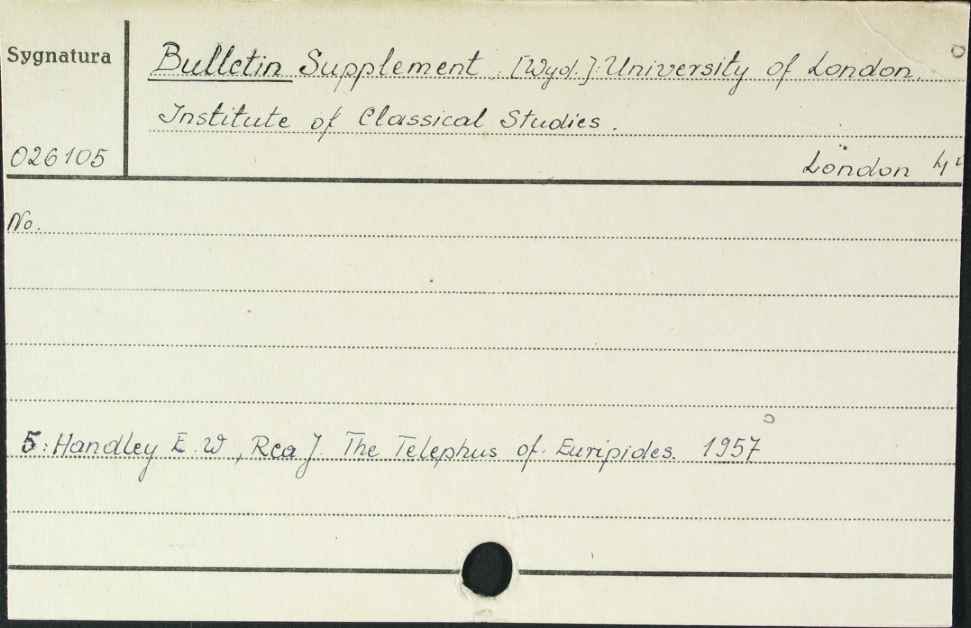 Sygnatura
Bulletin Supplement. [Wyd.]: University of London.
Institute of Classical Studies.
026105
London 4°
No.
5: Handley E. W, Rea J. The Telephus of Euripides. 1957